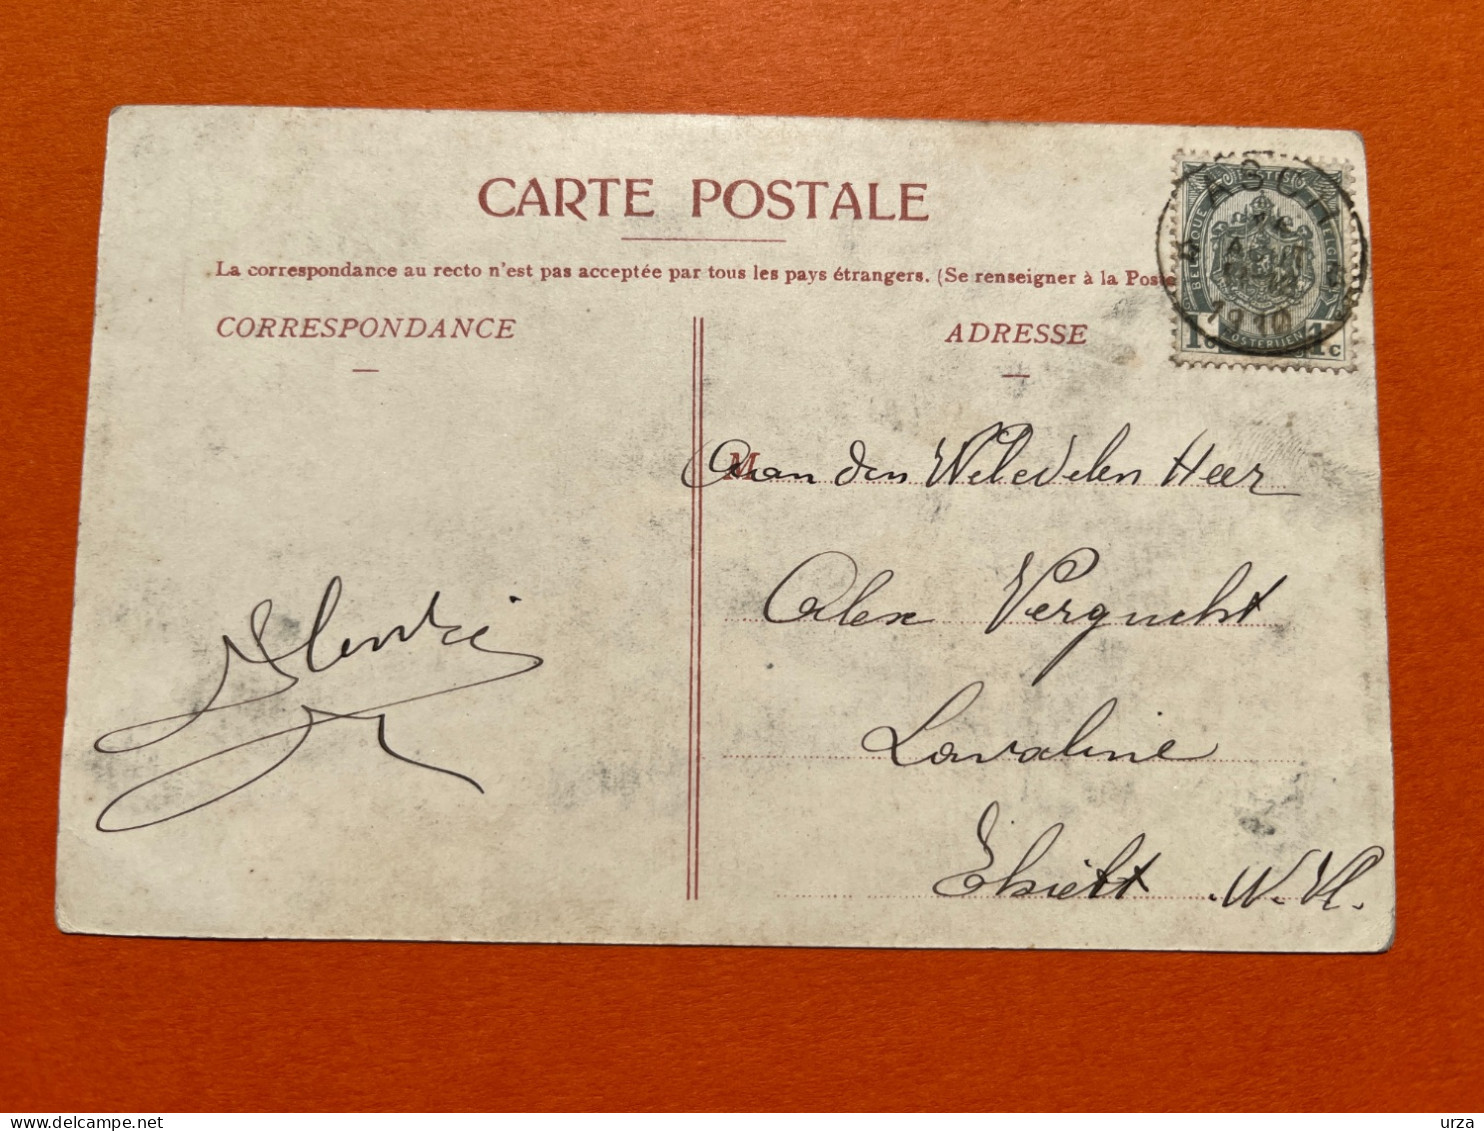 CARTE POSTALE
La correspondance au recto n'est pas acceptée par tous les pays étrangers. (Se renseigner à la Poste
CORRESPONDANCE
ADRESSE
POSTES
BELGIQUE
BELGIË
1c POSTERIJEN 1c
ASCH
1910
M
Aan den Weledelen Heer
Alex Vergucht
.W.Vl.
delcampe.net
urza